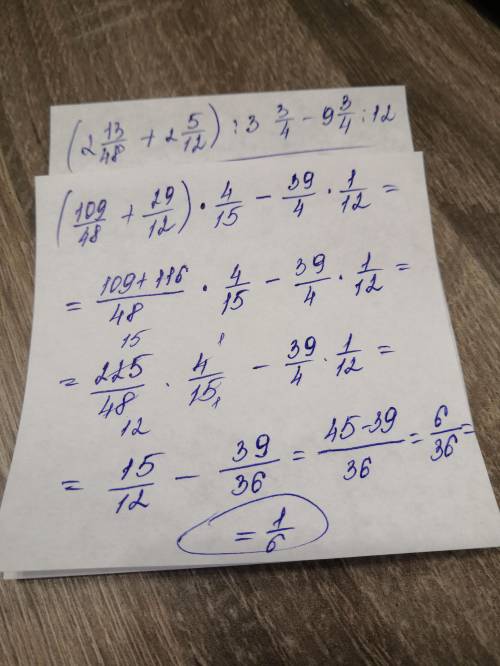 (2 13/48 + 2 5/12) : 3 3/4 - 9 3/4 : 12
(109/48 + 29/12) · 4/15 - 39/4 · 1/12 =
= (109+116)/48 · 4/15 - 39/4 · 1/12 =
15 1
= 225/48 · 4/15 - 39/4 · 1/12 =
12 1
= 15/12 - 39/36 = (45-39)/36 = 6/36 =
= 1/6